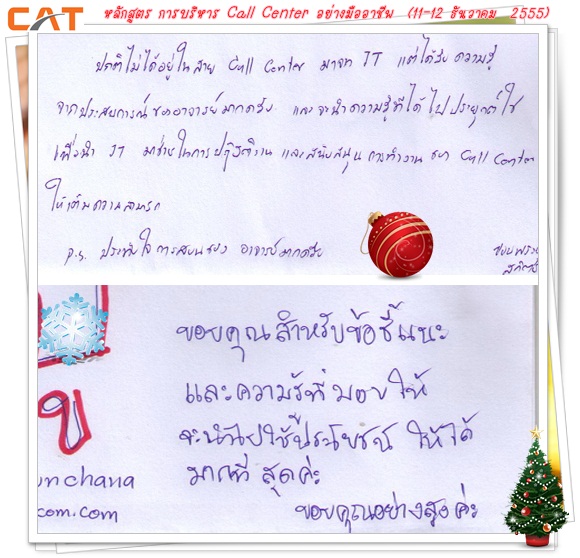 CAT หลักสูตร การบริหาร Call Center อย่างมืออาชีพ (11-12 ธันวาคม 2555)
ปกติไม่ได้อยู่ในสาย Call Center มาจาก IT แต่ได้รับความรู้
จากประสบการณ์ของอาจารย์มากครับ และจะนำความรู้ที่ได้ไปประยุกต์ใช้
เพื่อนำ IT มาช่วยในการปฏิบัติงาน และสนับสนุนการทำงานของ Call Center
ให้เต็มความสามารถ
p.s. ประทับใจการสอนของ อาจารย์มากครับ
ขอบคุณสำหรับข้อชี้แนะ
และความรู้ที่มอบให้
จะนำไปใช้ประโยชน์ ให้ได้
มากที่สุดค่ะ
ขอบคุณอย่างสูงค่ะ
nchana
com.com